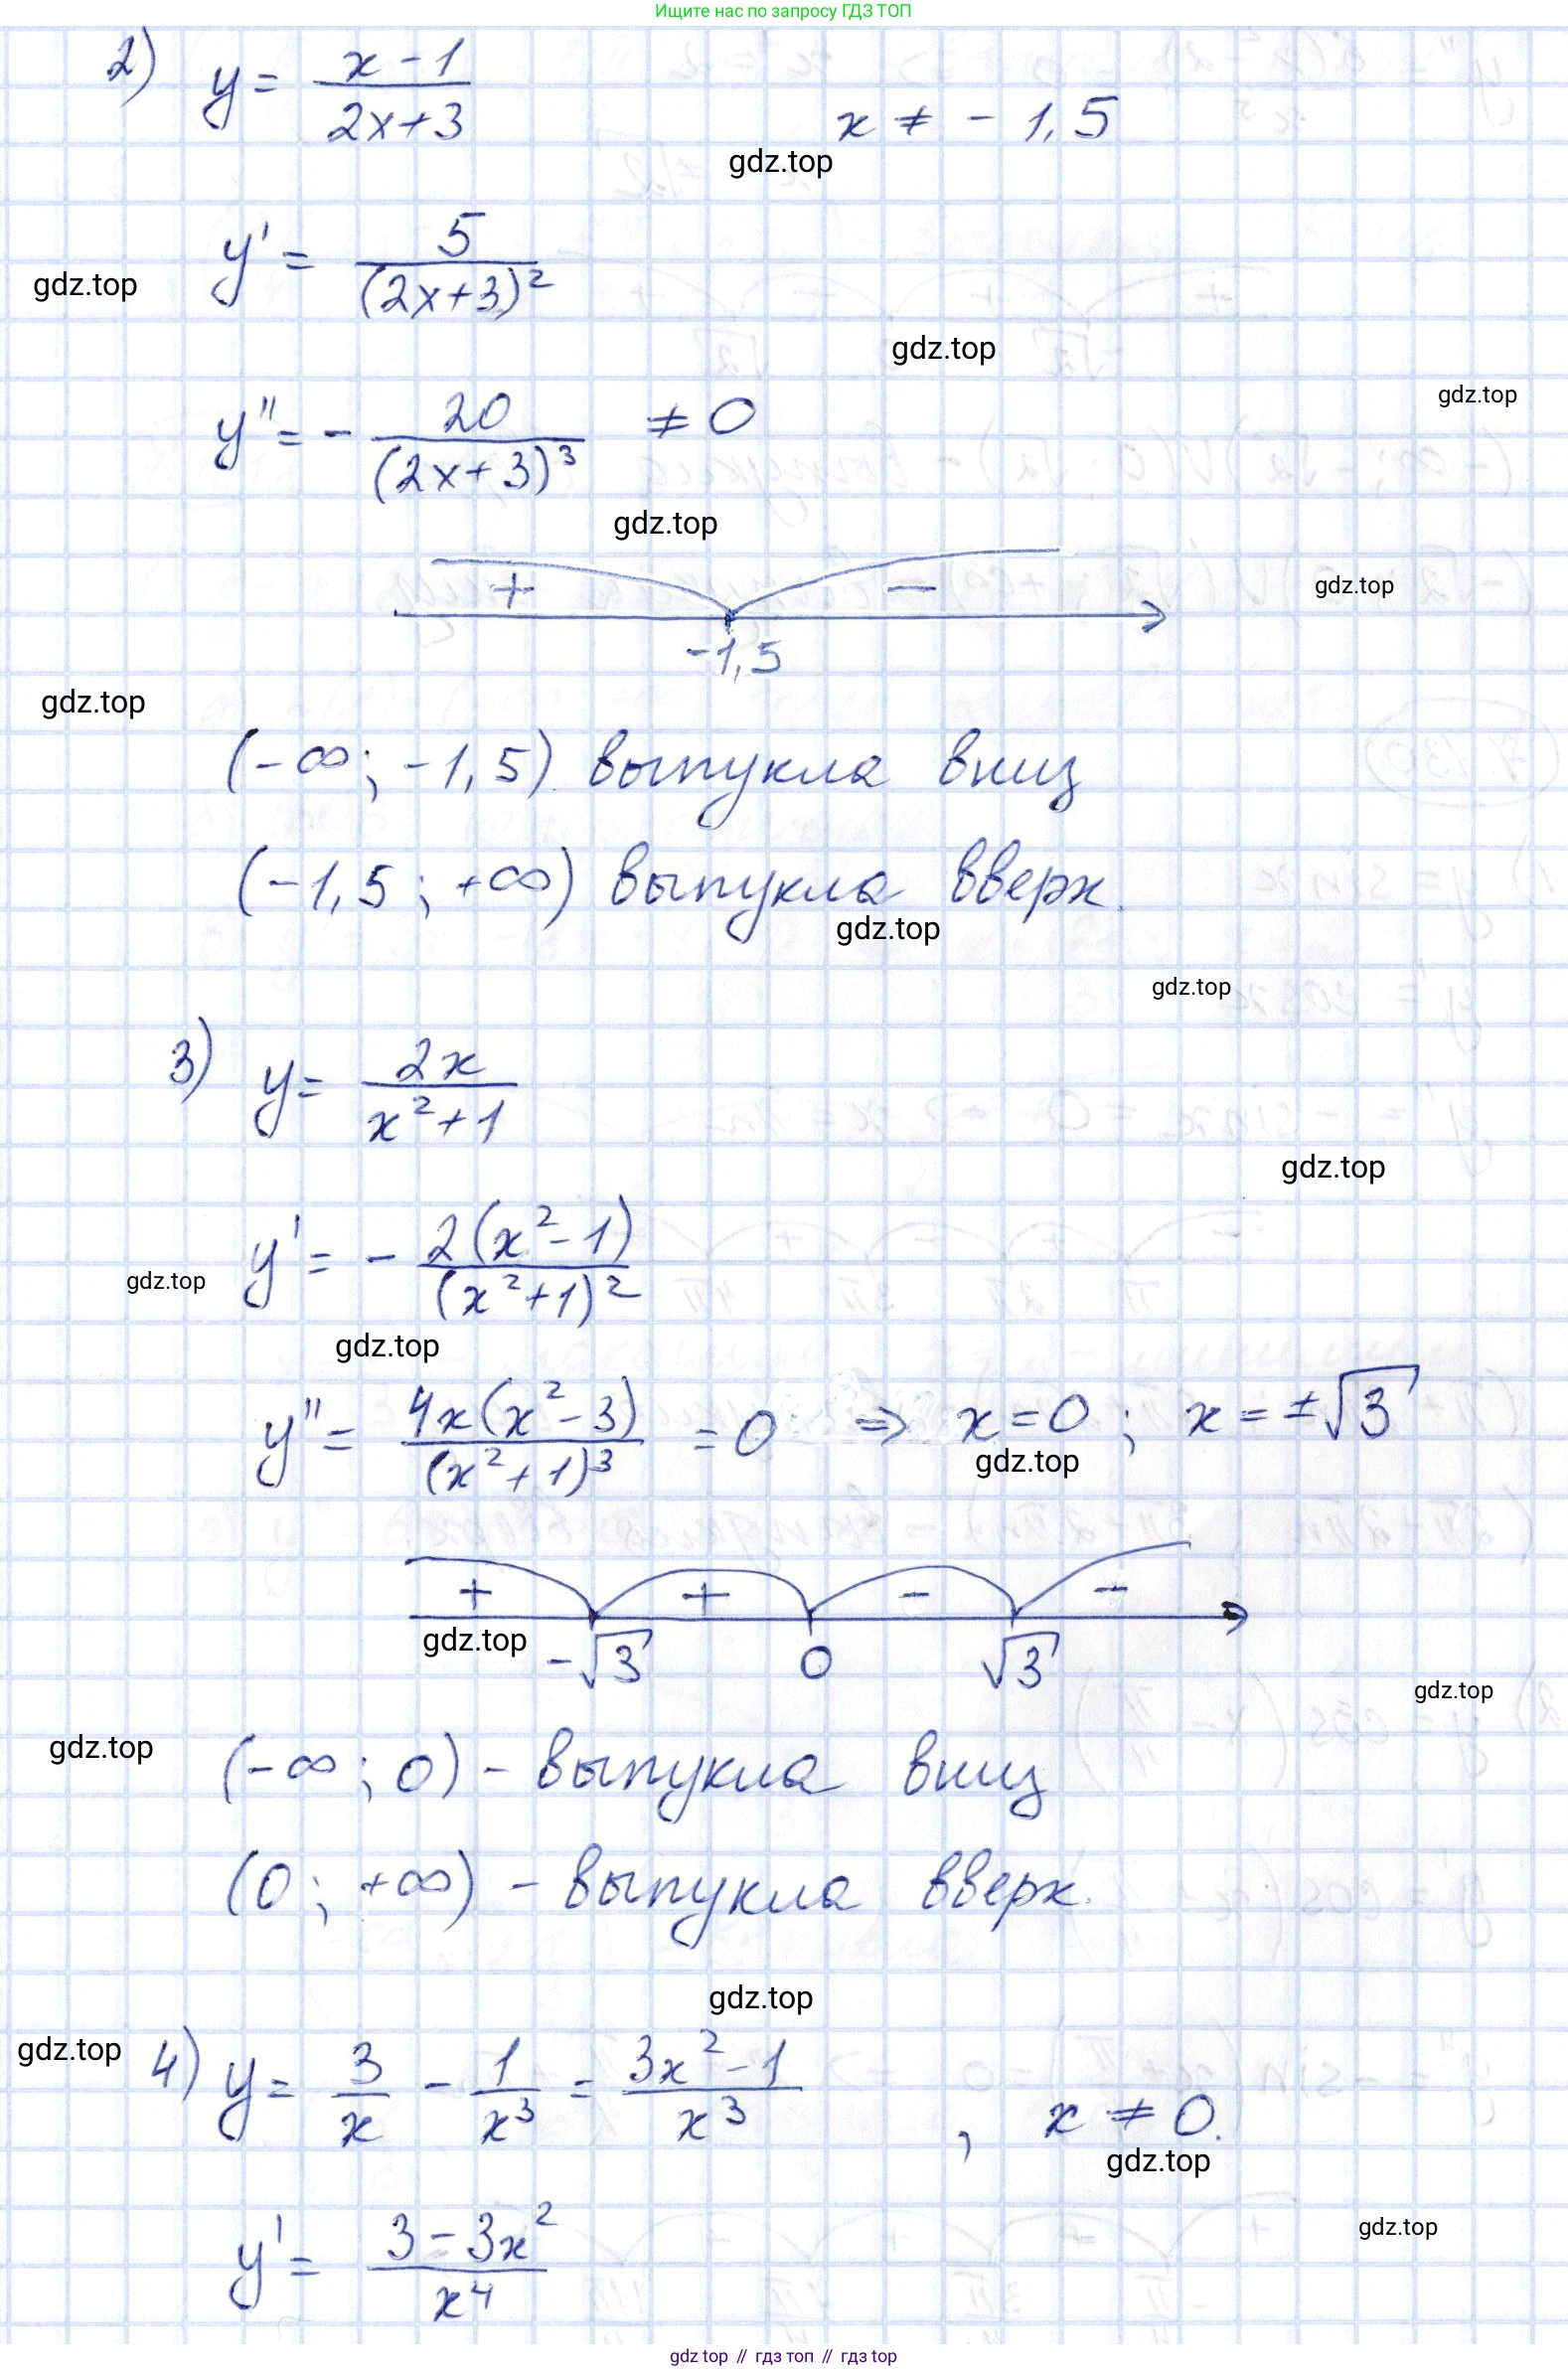 Ищите нас по запросу ГДЗ ТОП
2) y = (x - 1)/(2x + 3)    x ≠ - 1,5
gdz.top
y' = 5/(2x+3)²
gdz.top
gdz.top
gdz.top
y'' = - 20/(2x+3)³ ≠ 0
gdz.top
+ −
gdz.top
-1,5
gdz.top
(-∞; -1,5) выпукла вниз
(-1,5; +∞) выпукла вверх.
gdz.top
gdz.top
3) y = 2x/(x²+1)
gdz.top
y' = - 2(x²-1)/(x²+1)²
gdz.top
gdz.top
y'' = 4x(x²-3)/(x²+1)³ = 0 ⇒ x = 0; x = ±√3
gdz.top
+ + − −
gdz.top
-√3 0 √3
gdz.top
gdz.top
(-∞; 0) - выпукла вниз
(0; +∞) - выпукла вверх.
gdz.top
gdz.top
4) y = 3/x - 1/x³ = (3x²-1)/x³ , x ≠ 0.
gdz.top
gdz.top
y' = (3-3x²)/x⁴
gdz top // гдз топ // гдз top